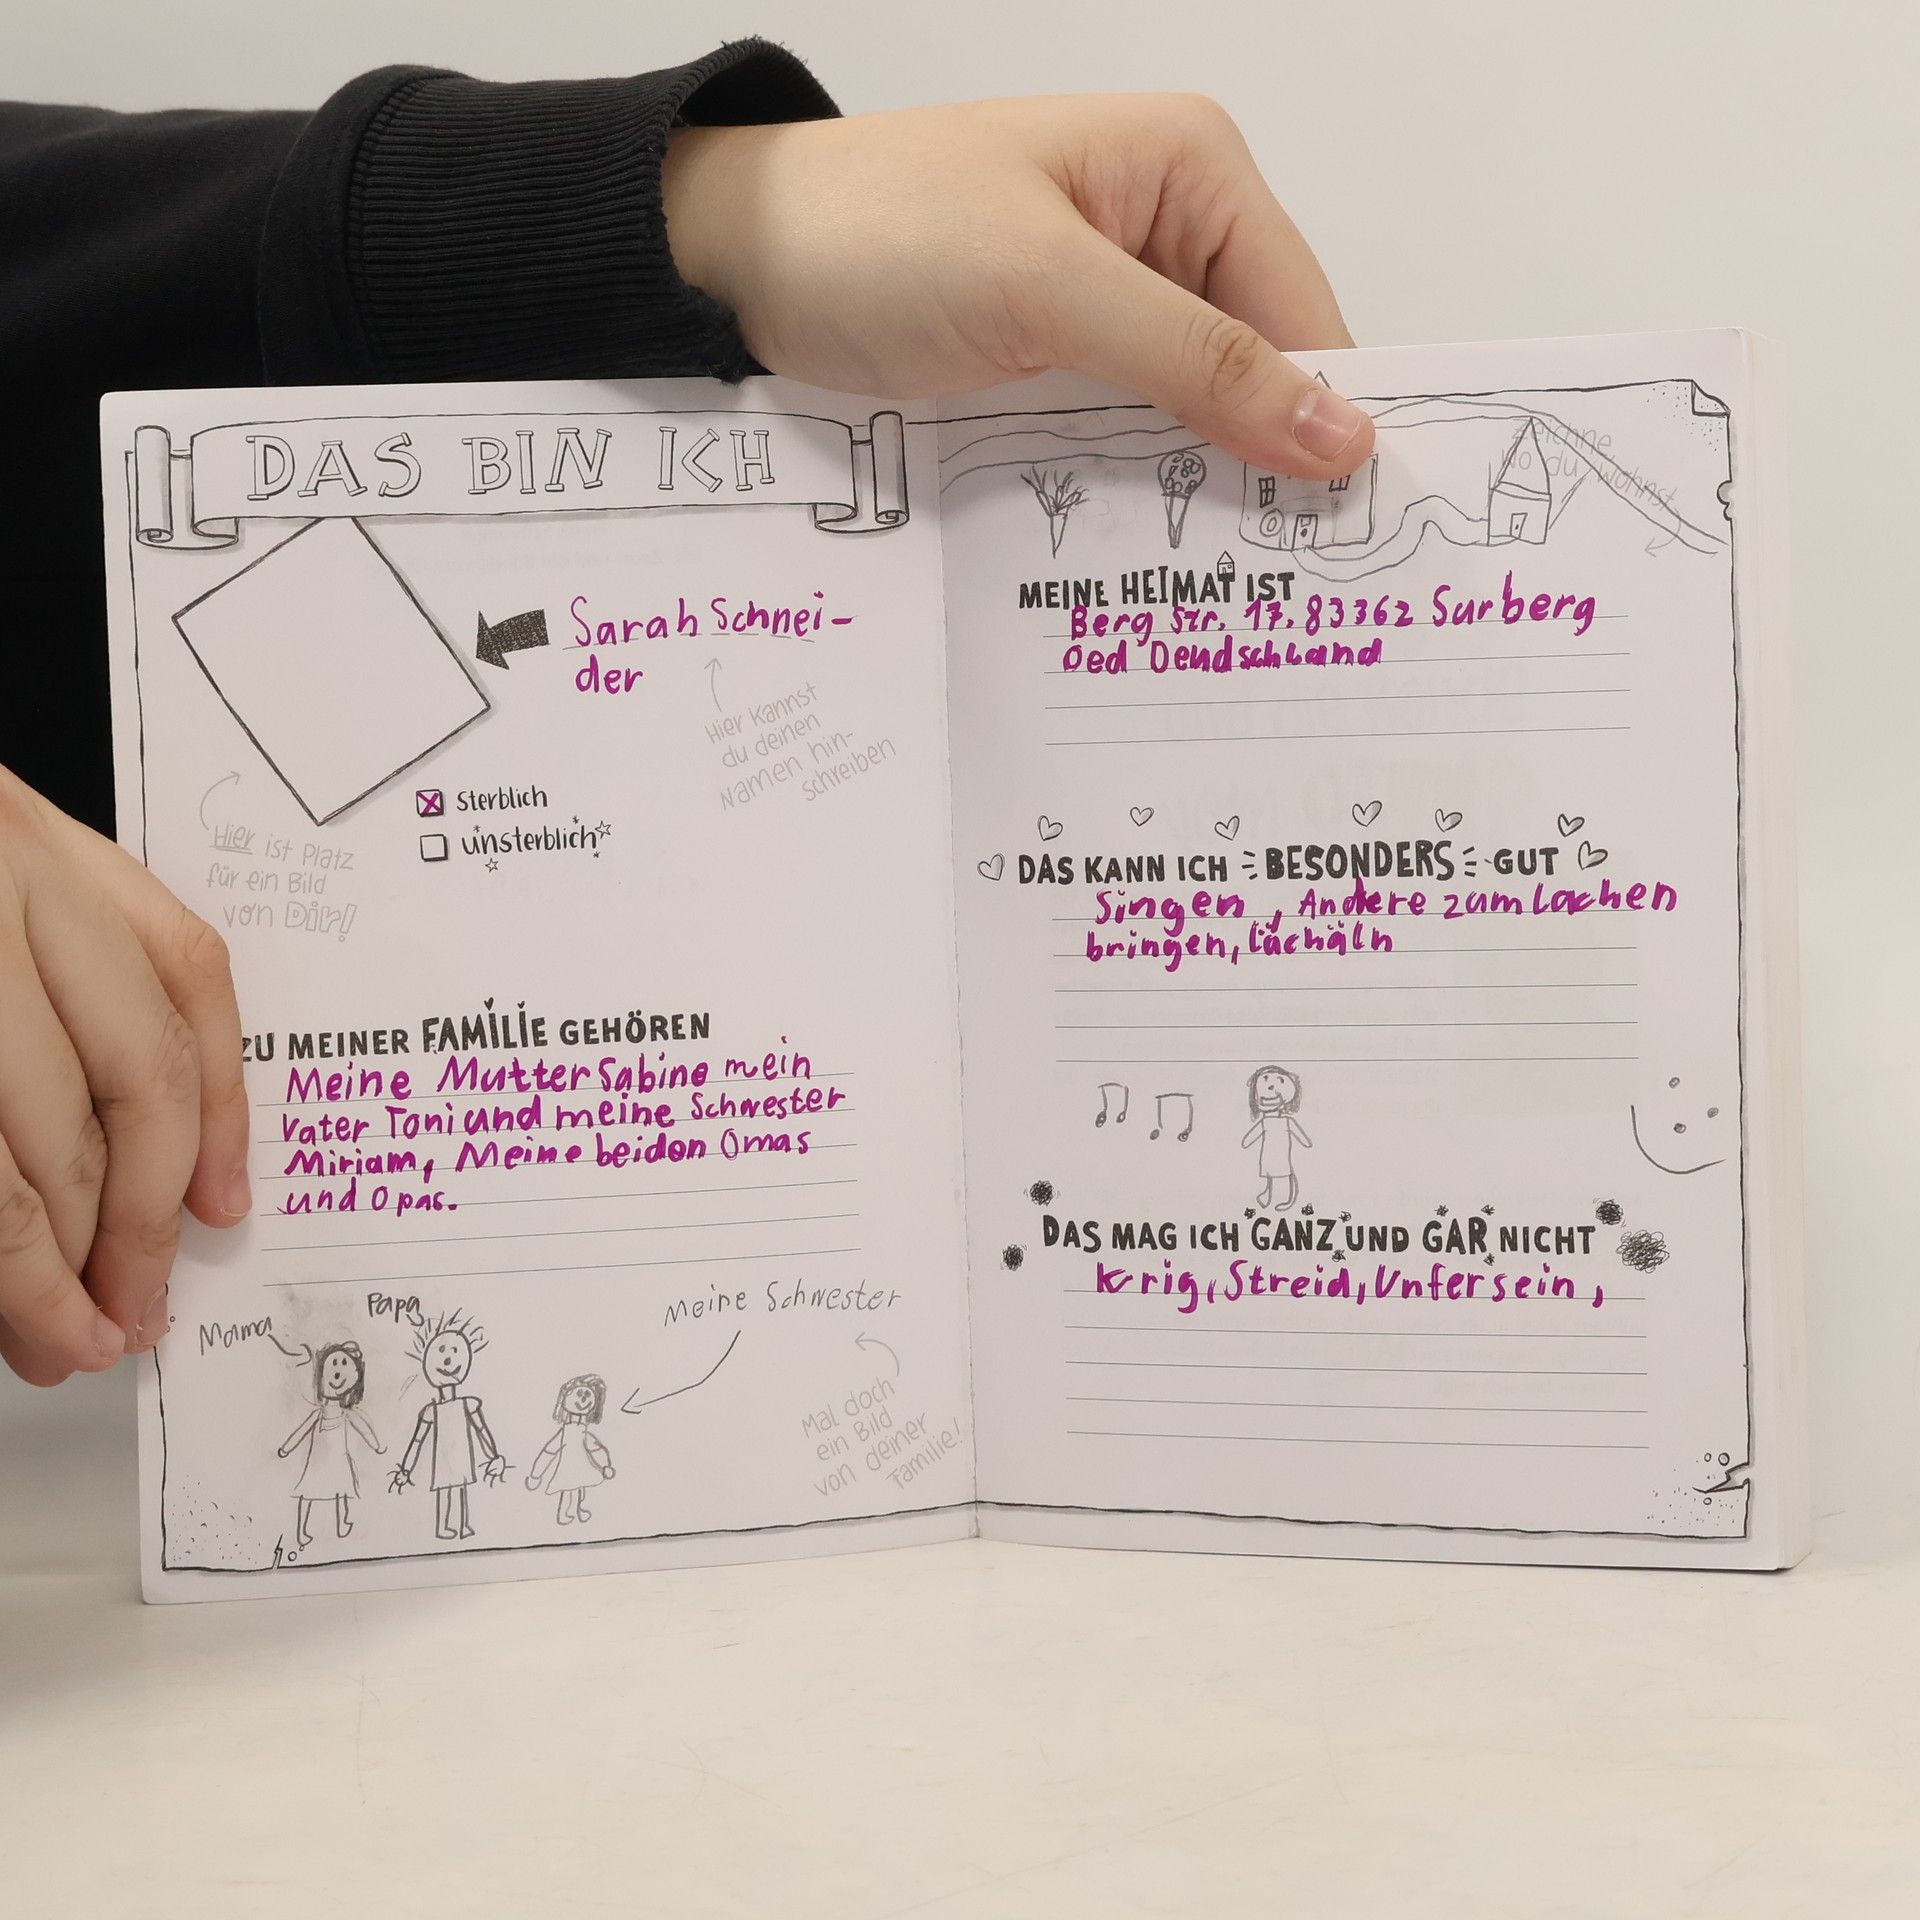 DAS BIN ICH
Sarah Schnei-
der
Hier kannst
du deinen
Namen hin-
schreiben
Sterblich
unsterblich
Hier ist Platz
für ein Bild
von Dir!
ZU MEINER FAMILIE GEHÖREN
Meine Mutter Sabine mein
Vater Toni und meine Schwester
Miriam, Meine beiden Omas
und Opas.
Mama
Papa
Meine Schwester
Mal doch
ein Bild
von deiner
Familie!
zeichne,
wo du wohnst
MEINE HEIMAT IST
Berg Str. 17. 83362 Surberg
Oed Deudschland
DAS KANN ICH BESONDERS GUT
Singen, Andere zum Lachen
bringen, Lächäln
DAS MAG ICH GANZ UND GAR NICHT
Krig, Streid, Unfersein,